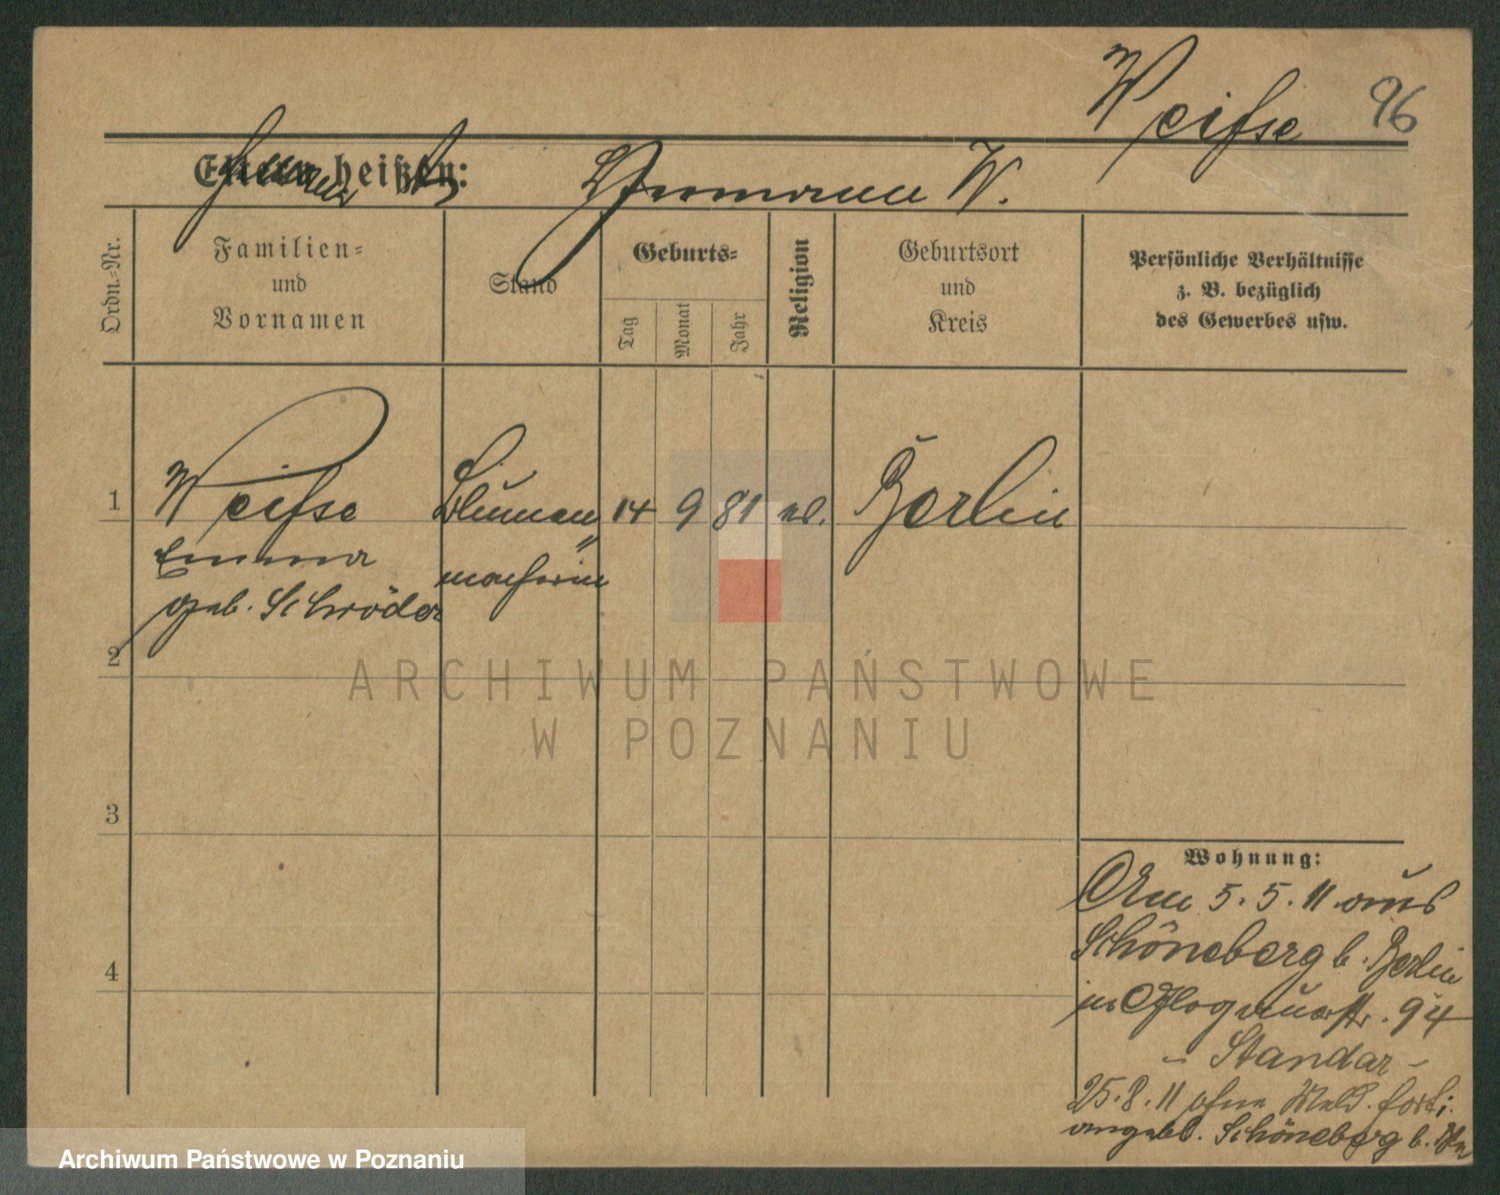 Weiſse 96
Eltern heißen: Hermann W.
Ordn.-Nr.
Familien-
und
Vornamen
Stand
Geburts-
Tag
Monat
Jahr
Religion
Geburtsort
und
Kreis
Persönliche Verhältnisse
z. B. bezüglich
des Gewerbes usw.
1 Weiſse Blumen 14 9 81 Berlin
Emma macherin
geb. Schröder
2
ARCHIWUM PAŃSTWOWE
W POZNANIU
3
Wohnung:
Am 5.5.11 aus
Schöneberg b. Berlin
4
in Glogauerstr. 94
- Standar -
25.8.11 ohne Meld. fort;
angebl. Schöneberg b. Bln
Archiwum Państwowe w Poznaniu